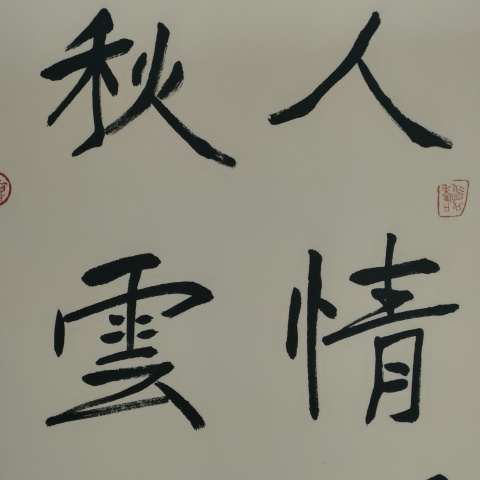 人情
秋雲